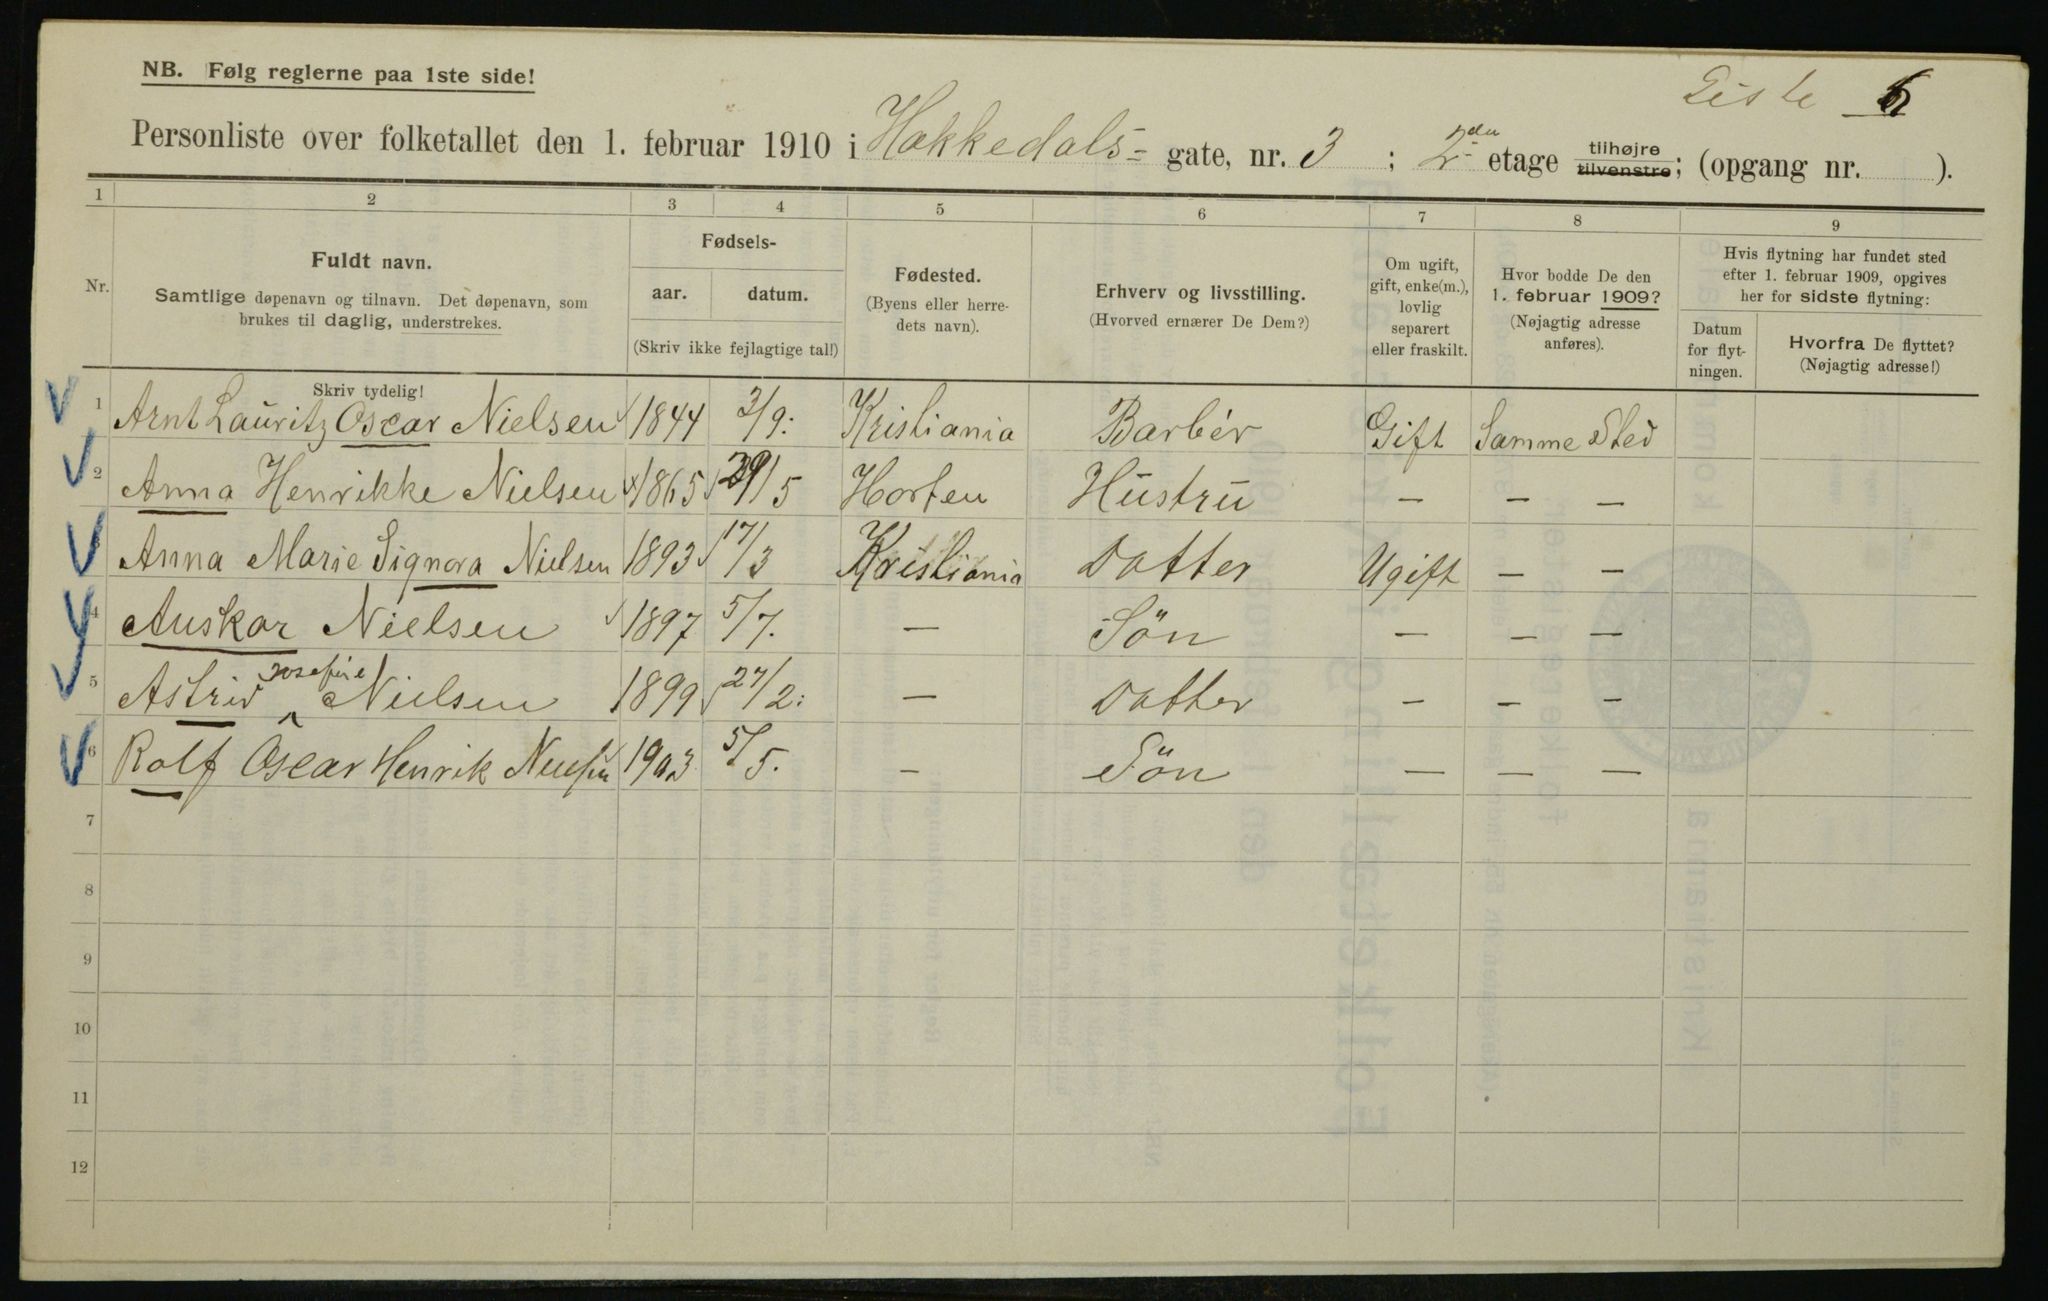 NB. Følg reglerne paa 1ste side!
Liste
Personliste over folketallet den 1. februar 1910 i Hakkedals= gate, nr. 3 ; 2den etage tilhøjre tilvenstre; (opgang nr. ).
1 2 3 4 5 6 7 8 9
Nr.
Fuldt navn.
Samtlige døpenavn og tilnavn. Det døpenavn, som
brukes til daglig, understrekes.
Skriv tydelig!
Fødsels-
aar. datum.
(Skriv ikke fejlagtige tal!)
Fødested.
(Byens eller herre-
dets navn).
Erhverv og livsstilling.
(Hvorved ernærer De Dem?)
Om ugift,
gift, enke(m.),
lovlig
separert
eller fraskilt.
Hvor bodde De den
1. februar 1909?
(Nøjagtig adresse
anføres).
Hvis flytning har fundet sted
efter 1. februar 1909, opgives
her for sidste flytning:
Datum
for flyt-
ningen.
Hvorfra De flyttet?
(Nøjagtig adresse!)
1 Arnt Lauritz Oscar Nielsen 1844 3/9: Kristiania Barbér Gift Samme Sted
2 Anna Henrikke Nielsen 1865 29/5 Horten Hustru — — —
3 Anna Marie Signora Nielsen 1893 17/3 Kristiania Datter Ugift — —
4 Auskar Nielsen 1897 5/7. — Sön — — —
5 Astrid Josefine Nielsen 1899 27/2: — Datter — — —
6 Rolf Oscar Henrik Nielsen 1903 5/5. — Sön — — —
7
8
9
10
11
12